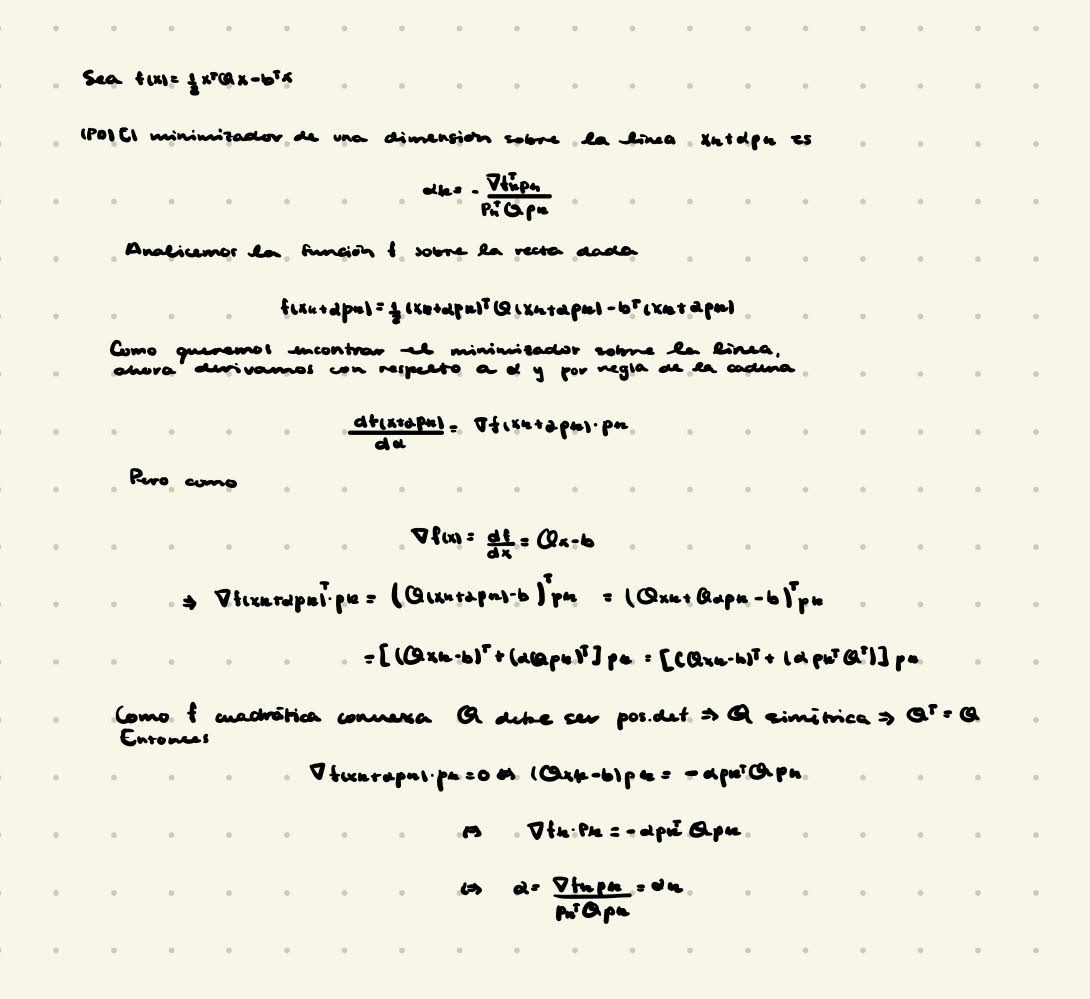 Sea f(x) = 1/2 xᵀQx - bᵀx
(PD) El minimizador de una dimensión sobre la línea xₖ+αpₖ es
αₖ = - ∇fₖᵀpₖ / pₖᵀQpₖ
Analicemos la función f sobre la recta dada
f(xₖ+αpₖ) = 1/2 (xₖ+αpₖ)ᵀQ(xₖ+αpₖ) - bᵀ(xₖ+αpₖ)
Como queremos encontrar el minimizador sobre la línea,
ahora derivamos con respecto a α y por regla de la cadena
df(x+αpₖ) / dα = ∇f(xₖ+αpₖ)·pₖ
Pero como
∇f(x) = df/dx = Qx-b
⇒ ∇f(xₖ+αpₖ)ᵀ·pₖ = (Q(xₖ+αpₖ)-b)ᵀpₖ = (Qxₖ+Qαpₖ-b)ᵀpₖ
= [(Qxₖ-b)ᵀ+(αQpₖ)ᵀ]pₖ = [(Qxₖ-b)ᵀ+(αpₖᵀQᵀ)]pₖ
Como f cuadrática convexa Q debe ser pos.def ⇒ Q simétrica ⇒ Qᵀ = Q
Entonces
∇f(xₖ+αpₖ)·pₖ = 0 ⇔ (Qxₖ-b)pₖ = -αpₖᵀQpₖ
⇔ ∇fₖ·pₖ = -αpₖᵀQpₖ
⇔ α = ∇fₖpₖ / pₖᵀQpₖ = αₖ